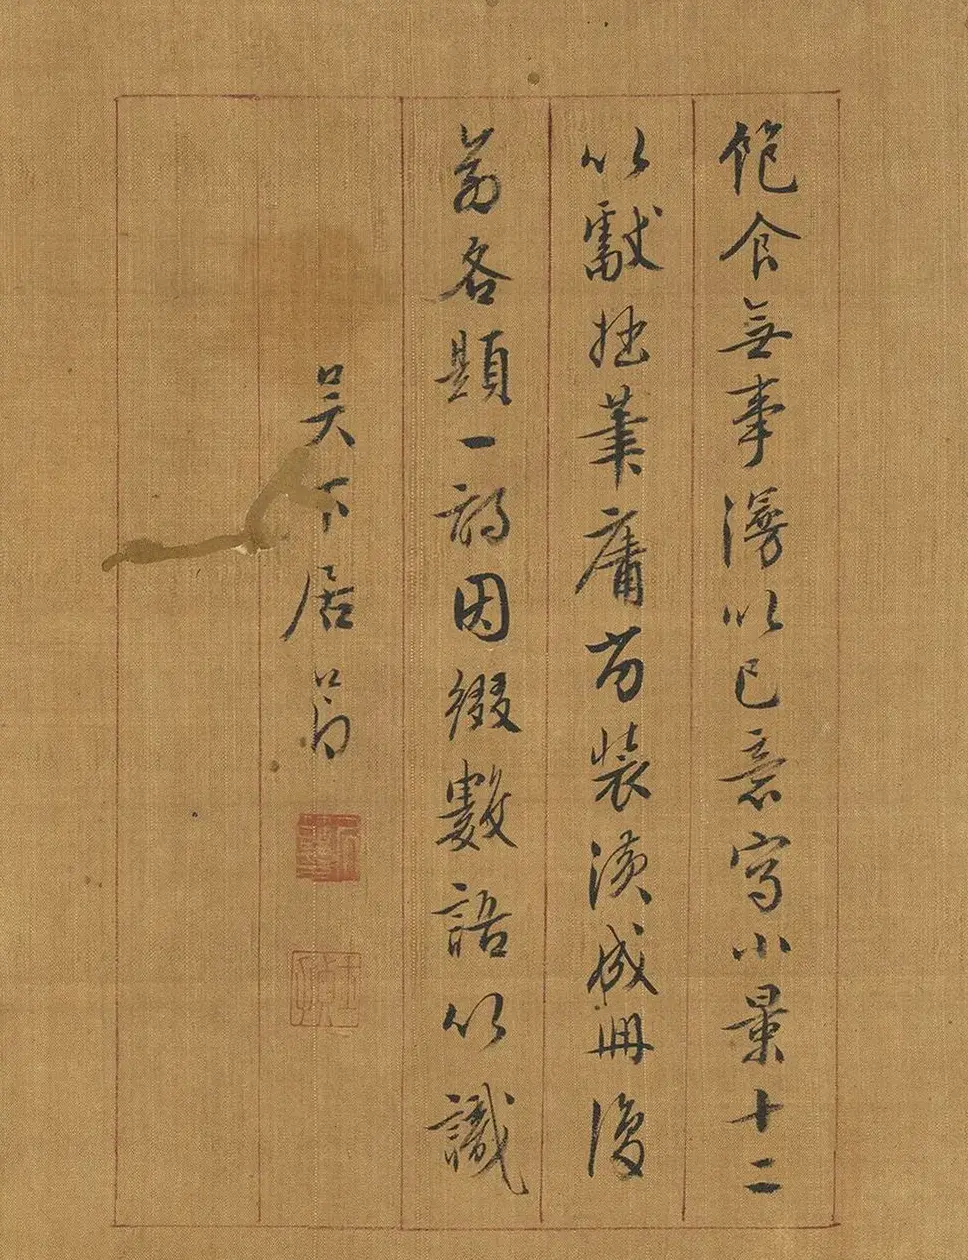 飽食無事漫以己意寫小景十二
以獻拙筆庸為装潢成冊復
為各題一韵因綴數語以識
吴下居節